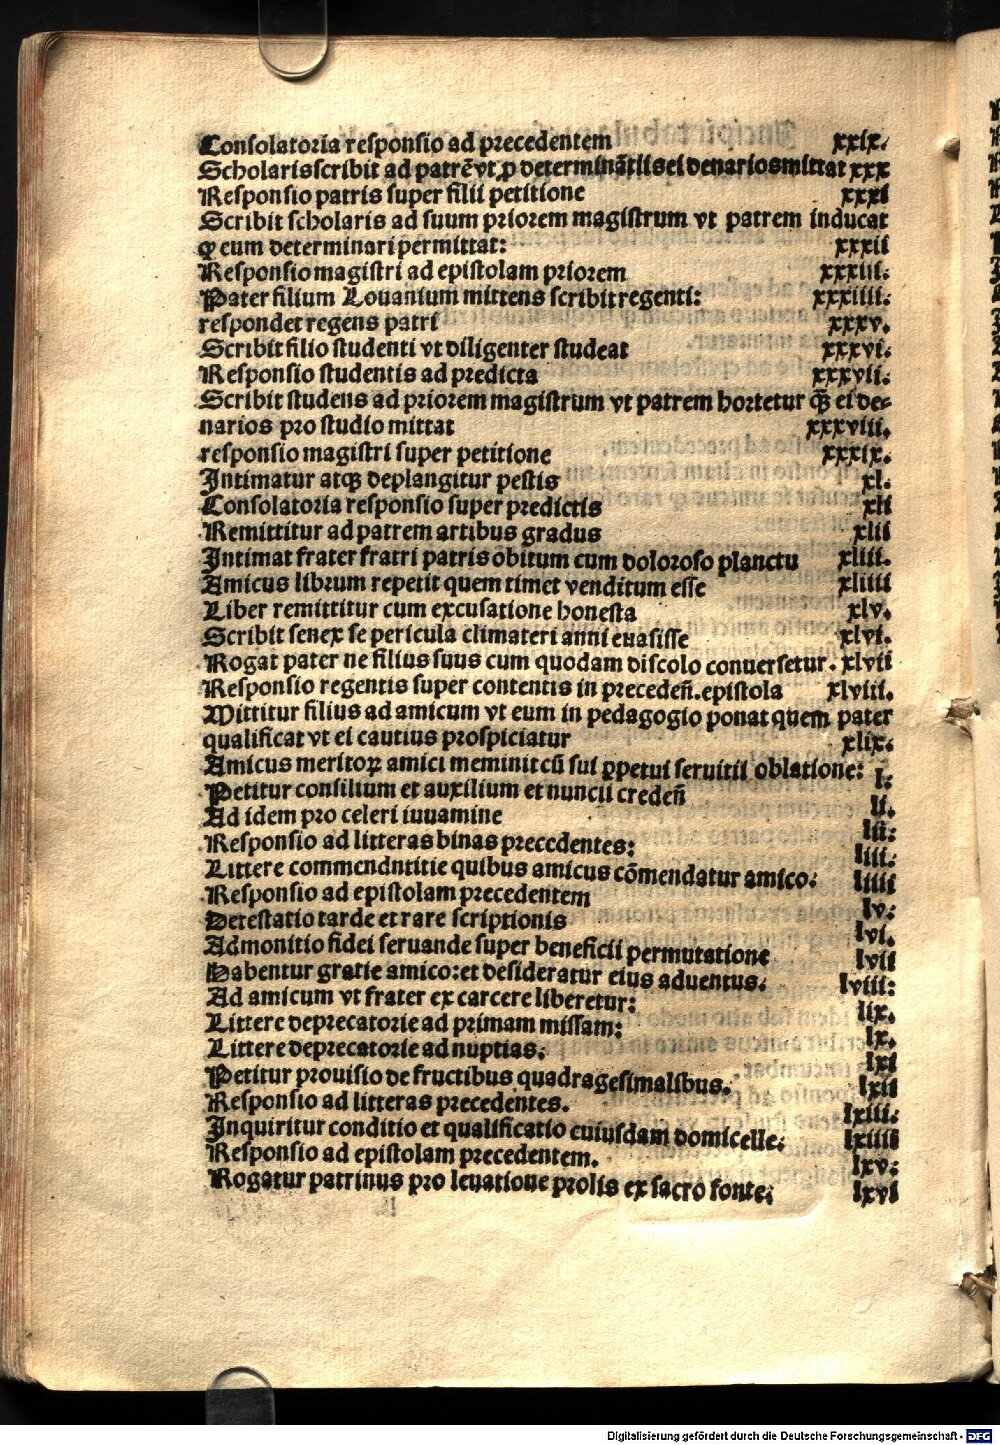 Consolatoria responsio ad precedentem xxix.
Scholaris scribit ad patrē vt ꝓ determinātiis ei denarios mittat xxx
Responsio patris super filii petitione xxxi
Scribit scholaris ad suum priorem magistrum vt patrem inducat
ꝙ eum determinari permittat: xxxii
Responsio magistri ad epistolam priorem xxxiii.
Pater filium Louanium mittens scribit regenti: xxxiiii.
respondet regens patri xxxv.
Scribit filio studenti vt diligenter studeat xxxvi.
Responsio studentis ad predicta xxxvii.
Scribit studens ad priorem magistrum vt patrem hortetur ꝙ̄ ei de-
narios pro studio mittat xxxviii.
responsio magistri super petitione xxxix.
Intimatur atqꝫ deplangitur pestis xl.
Consolatoria responsio super predictis xli
Remittitur ad patrem artibus gradus xlii
Intimat frater fratri patris obitum cum doloroso planctu xliii.
Amicus librum repetit quem timet venditum esse xliiii
Liber remittitur cum excusatione honesta xlv.
Scribit senex se pericula climateri anni euasisse xlvi.
Rogat pater ne filius suus cum quodam discolo conuersetur. xlvii
Responsio regentis super contentis in preceden̄. epistola xlviii.
Mittitur filius ad amicum vt eum in pedagogio ponat quem pater
qualificat vt ei cautius prospiciatur xlix.
Amicus meritoꝝ amici meminit cū sui ꝑpetui seruitii oblatione: l.
Petitur consilium et auxilium et nuncii creden̄ li.
Ad idem pro celeri iuuamine lii:
Responsio ad litteras binas precedentes: liii.
Littere commendntitie quibus amicus cōmendatur amico: liiii
Responsio ad epistolam precedentem lv.
Detestatio tarde et rare scriptionis lvi.
Admonitio fidei seruande super beneficii permutatione lvii
Habentur gratie amico: et desideratur eius aduentus. lviii:
Ad amicum vt frater ex carcere liberetur: lix.
Littere deprecatorie ad primam missam: lx.
Littere deprecatorie ad nuptias. lxi
Petitur prouisio de fructibus quadragesimalibus. lxii
Responsio ad litteras precedentes. lxiii:
Inquiritur conditio et qualificatio cuiusdam domicelle: lxiiii
Responsio ad epistolam precedentem. lxv:
Rogatur patrinus pro leuatione prolis ex sacro fonte: lxvi
Digitalisierung gefördert durch die Deutsche Forschungsgemeinschaft - DFG